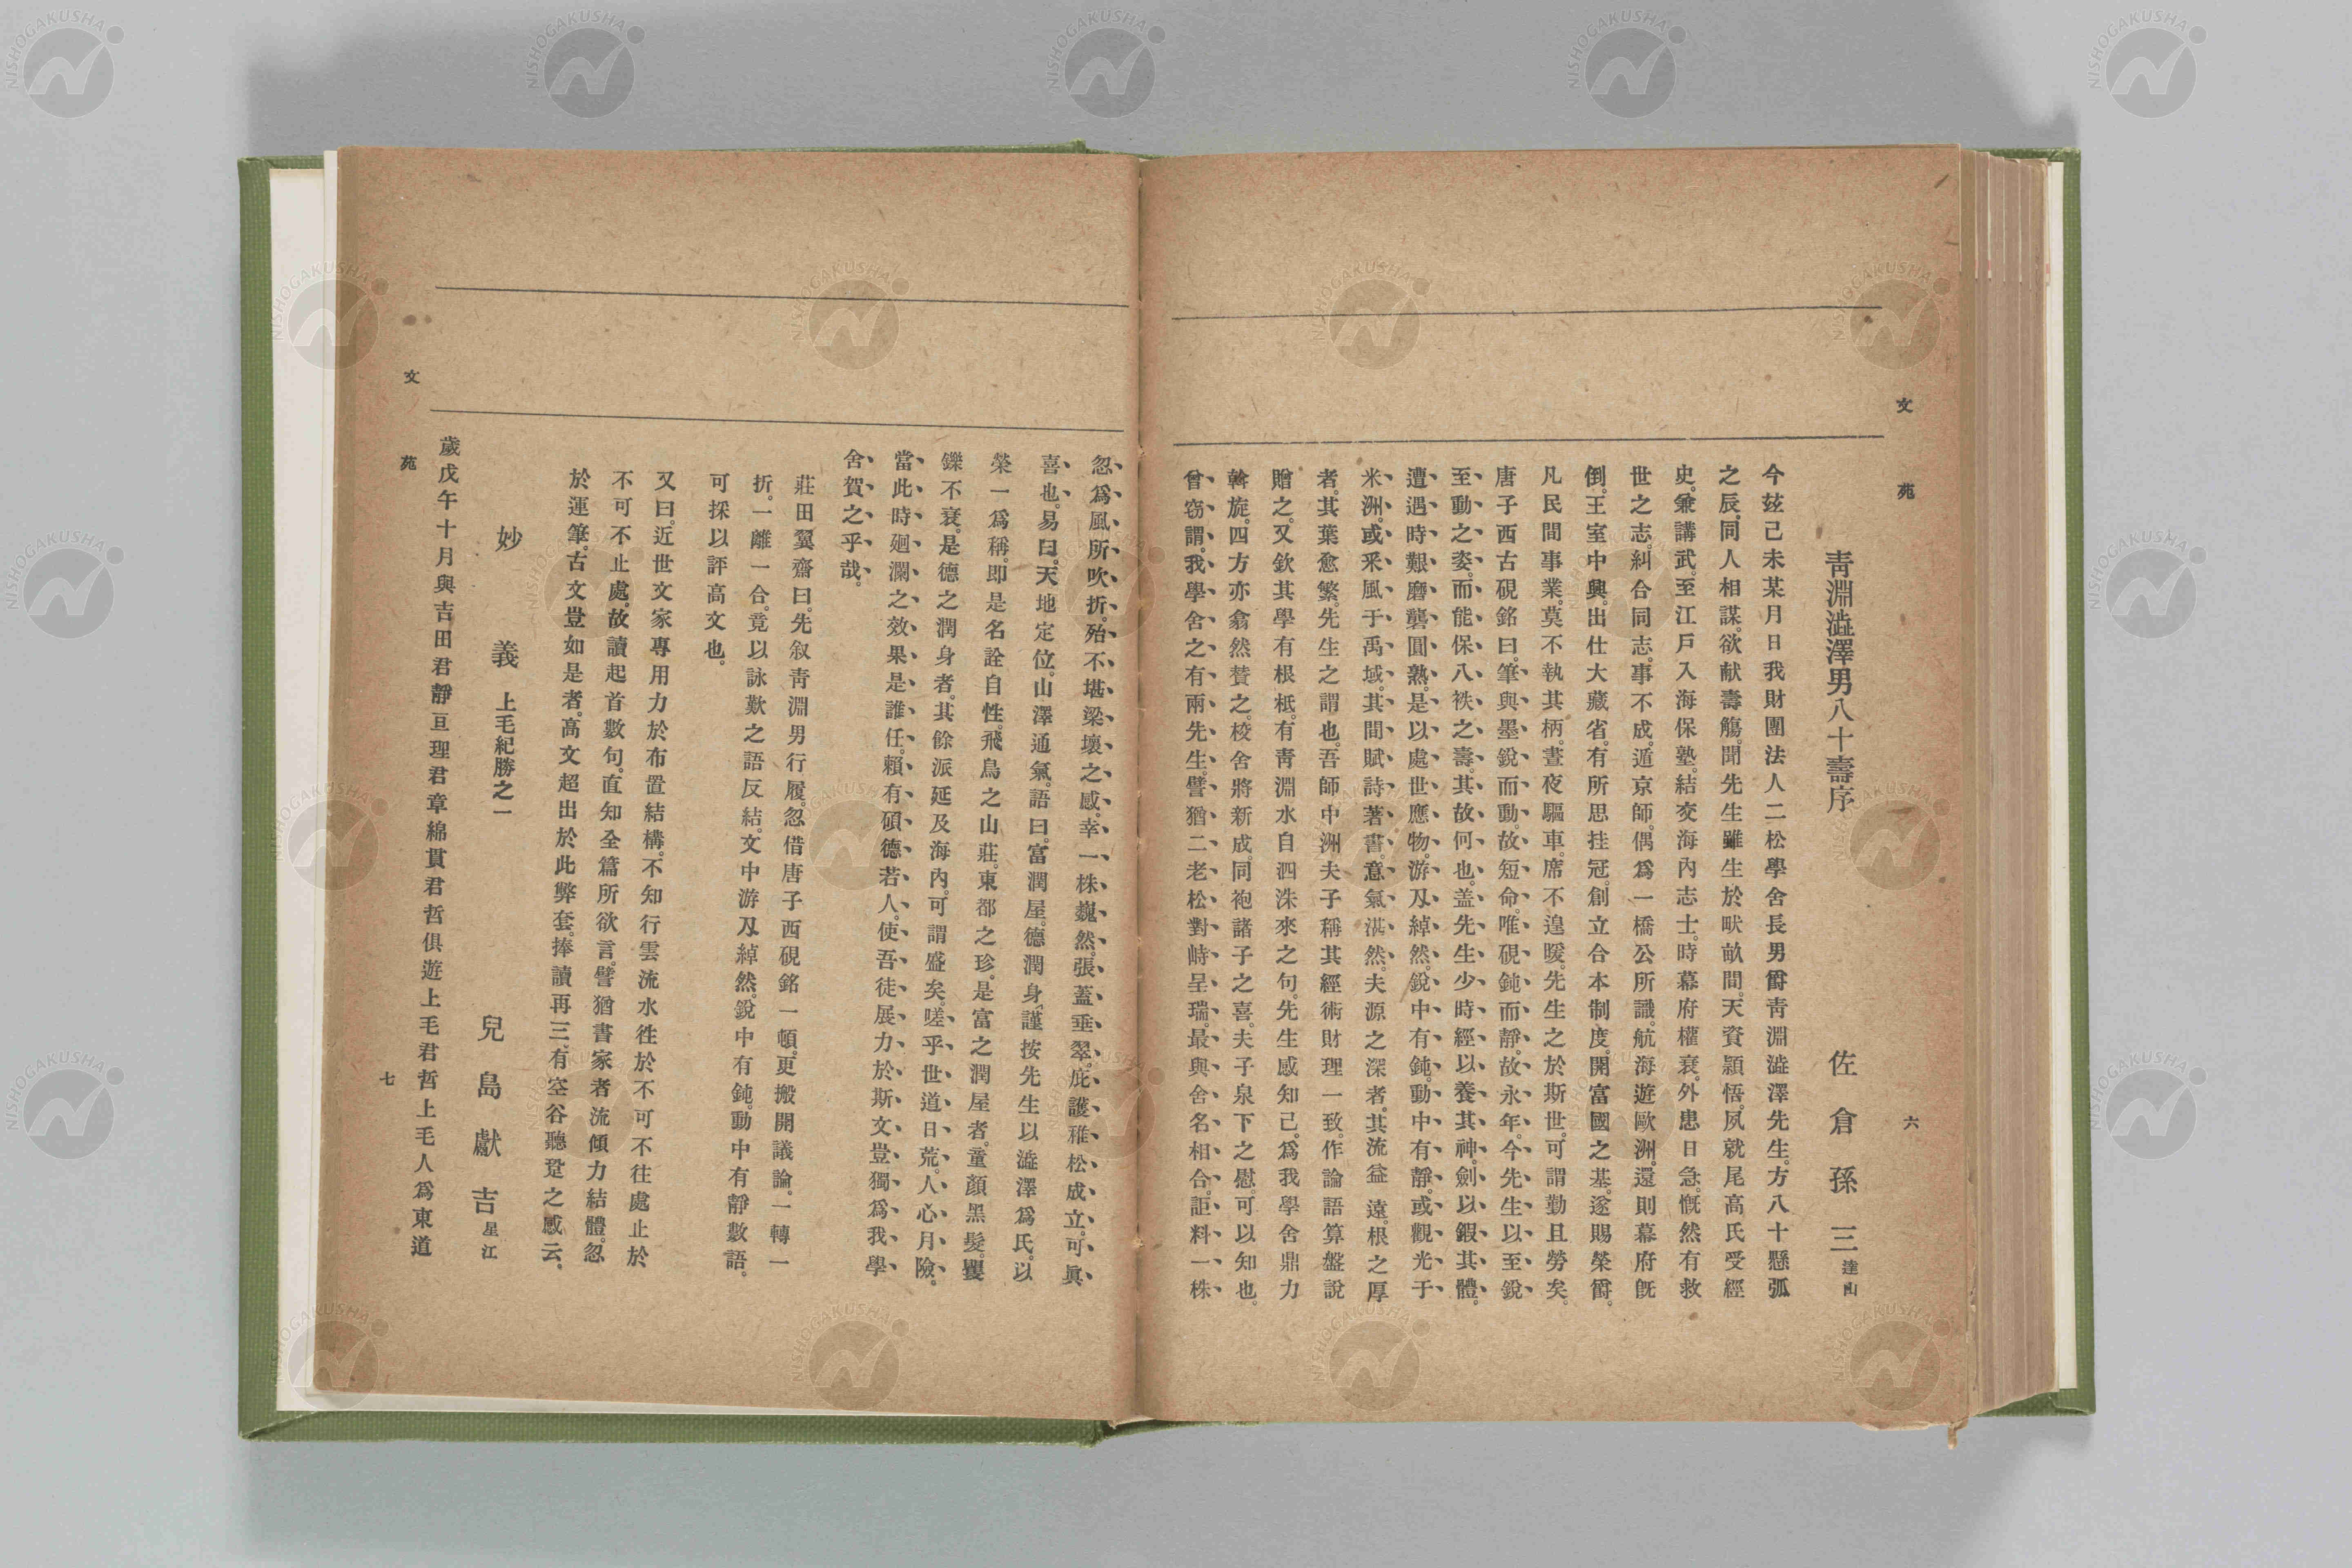 文苑
六
靑淵澁澤男八十壽序
佐倉孫三達山
今玆己未某月日我財團法人二松學舍長男爵靑淵澁澤先生。方八十懸弧
之辰。同人相謀。欲献壽觴。聞先生雖生於畎畝間。天資穎悟。夙就尾高氏受經
史。兼講武。至江戶入海保塾。結交海內志士。時幕府權衰。外患日急。慨然有救
世之志。糾合同志。事不成。遁京師。偶爲一橋公所識。航海遊歐洲。還則幕府旣
倒。王室中興。出仕大藏省。有所思挂冠。創立合本制度。開富國之基。遂賜榮爵。
凡民間事業。莫不執其柄。晝夜驅車。席不遑暖。先生之於斯世。可謂勤且勞矣。
唐子西古硯銘曰。筆與墨銳而動。故短命。唯硯鈍而靜。故永年。今先生以至銳
至動之姿。而能保八袟之壽。其故何也。盖先生少時經以養其神。劍以鍜其體。
遭遇時艱。磨礱圓熟。是以處世應物。游刄綽然。銳中有鈍。動中有靜。或觀光于
米洲。或釆風于禹域。其間賦詩著書。意氣淇然。夫源之深者。其流益遠。根之厚
者。其葉愈繁。先生之謂也。吾師中洲夫子稱其經術財理一致。作論語算盤說
贈之。又欽其學有根柢。有靑淵水自泗洙來之句。先生感知己。爲我學舍鼎力
斡旋。四方亦翕然賛之。棱舍將新成。同袍諸子之喜。夫子泉下之慰。可以知也。
曾窃謂。我學舍之有兩先生。譬猶二老松對峙呈瑞。最與舍名相合。詎料一株
忽爲風所吹折。殆不堪梁壞之感。幸一株巍然。張蓋垂翠。庇護稚松成立。可眞
喜也。易曰。天地定位。山澤通氣。語曰。富潤屋。德潤身。謹按先生以澁澤爲氏。以
榮一爲稱。卽是名詮自性。飛鳥之山莊。東都之珍。是富之潤屋者。童顔黑髮。矍
鑠不衰。是德之潤身者。其餘派延及海內。可謂盛矣。嗟乎。世道日荒。人心月險。
當此時廻瀾之效果是誰任。賴有碩德若人。使吾徒展力於斯文豈獨爲我學
舍賀之乎哉。
莊田翼齋曰。先叙靑淵男行履。忽借唐子西硯銘一頓。更搬開議論。一轉一
折。一離一合。竟以詠歎之語反結。文中游刄綽然。銳中有鈍。動中有靜數語。
可採以評高文也。
又曰。近世文家專用力於布置結構。不知行雲流水徃於不可不往處止於
不可不止處。故讀起首數句。直知全篇所欲言。譬猶書家者流傾力結體。忽
於運筆。古文豈如是者。高文超出於此弊套。捧讀再三。有空谷聽跫之感云。
妙義 上毛紀勝之一
兒島獻吉星江
歲戊午十月與吉田君靜亘理君章綿貫君哲俱遊上毛君哲上毛人爲東道
文苑
七